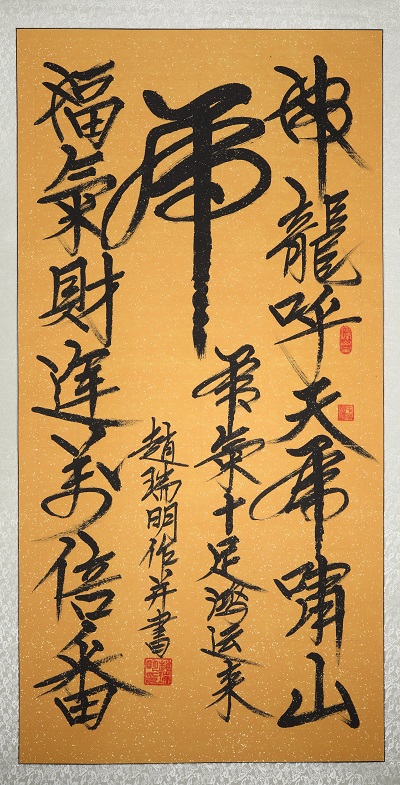 神龍呼天虎嘯山
虎
虎氣十足鴻运来
趙瑞明作并書
福氣財運萬倍番